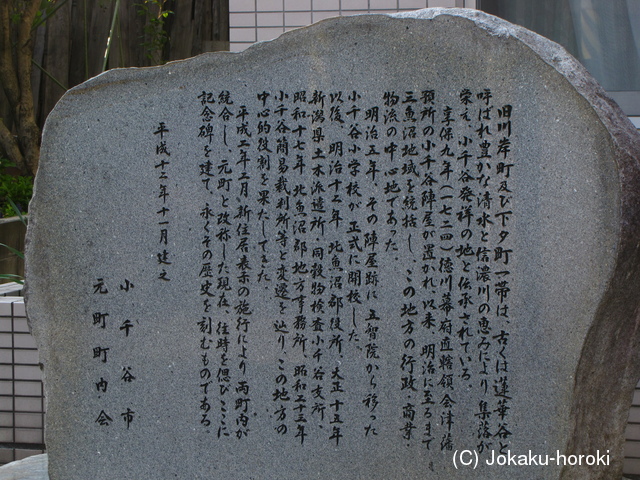 旧川岸町及び下夕町一帯は、古くは蓮華谷と
呼ばれ豊かな清水と信濃川の恵みにより集落が
栄え、小千谷発祥の地と伝承されている。
享保九年(一七二四)徳川幕府直轄領会津藩
預所の小千谷陣屋が置かれ、以来、明治に至るまで
三魚沼地域を統括し、この地方の行政・商業・
物流の中心地であった。
明治五年、その陣屋跡に五智院から移った
小千谷小学校が正式に開校した。
以後、明治十二年北魚沼郡役所、大正十五年
新潟県土木派遣所、同穀物検査小千谷支所、
昭和十七年北魚沼郡地方事務所、昭和二十三年
小千谷簡易裁判所等と変遷を辿り、この地方の
中心的役割を果たしてきた。
平成二年二月、新住居表示の施行により両町内が
統合し、元町と改称した現在、往時を偲びここに
記念碑を建て、永くその歴史を刻むものである。
平成十二年十一月建之
小千谷市
元町町内会
(C) Jokaku-horoki